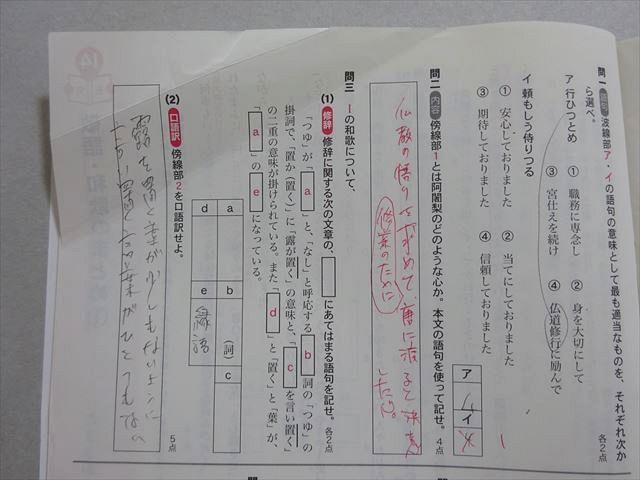 問一 語句 波線部ア・イの語句の意味として最も適当なものを、それぞれ次か
ら選べ。 各2点
ア 行ひつとめ
① 職務に専念し ② 身を大切にして
③ 宮仕えを続け ④ 仏道修行に励んで
イ 頼もしう侍りつる
① 安心しておりました ② 当てにしておりました
③ 期待しておりました ④ 信頼しておりました
ア
イ
問二 内容 傍線部1とは阿闍梨のどのような心か。本文の語句を使って記せ。 4点
仏教の悟りを求めて唐に渡ると決意
した心。
修業のために
問三 Ⅰの和歌について、
(1) 修辞 修辞に関する次の文章の、 にあてはまる語句を記せ。 各2点
「つゆ」が「a」と、「なし」と呼応するb詞の「つゆ」の
掛詞で、「置か(置く)」に「露が置く」の意味と、「cを言い置く」
の二重の意味が掛けられている。また「d」と「置く」と「葉」が、
「a」のeになっている。
a
b
(詞)
c
d
e 縁語
(2) 口語訳 傍線部2を口語訳せよ。
露を置く葉が少しもないように
5点